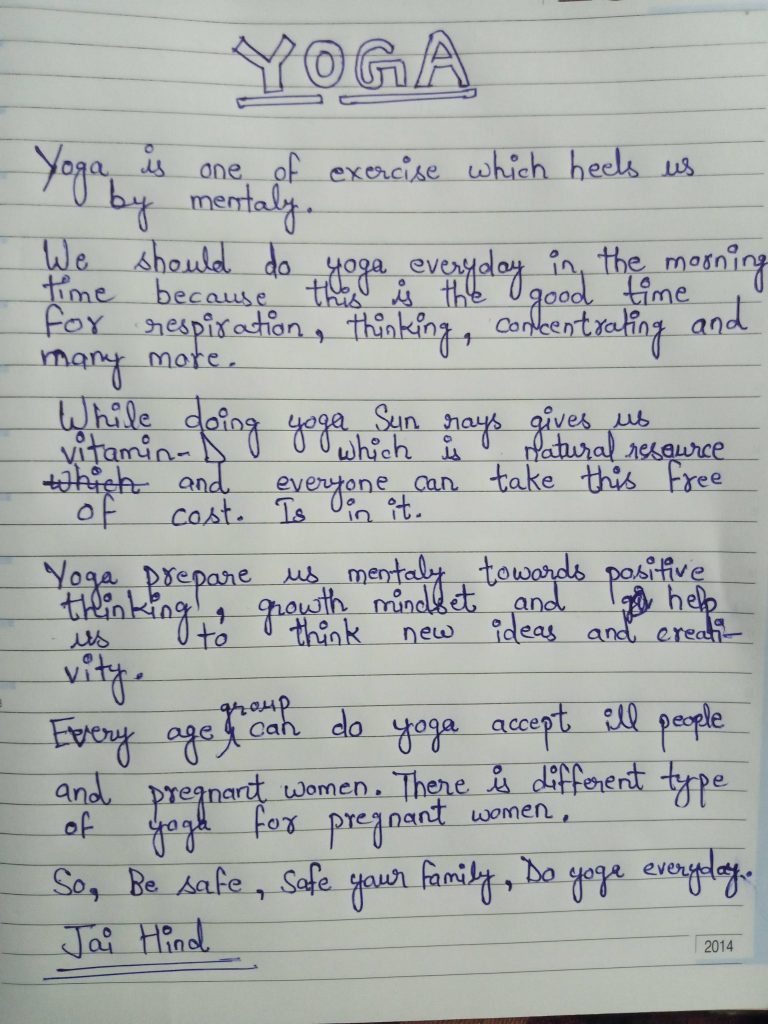 YOGA
Yoga is one of exercise which heels us
by mentaly.
We should do yoga everyday in the morning
time because this is the good time
for respiration, thinking, concentrating and
many more.
While doing yoga Sun rays gives us
vitamin-D which is natural resource
which and everyone can take this free
of cost. Is in it.
Yoga prepare us mentaly towards positive
thinking, growth mindset and help
us to think new ideas and creati-
vity.
Every age group can do yoga accept ill people
and pregnant women. There is different type
of yoga for pregnant women.
So, Be safe, Safe your family, Do yoga everyday..
Jai Hind
2014